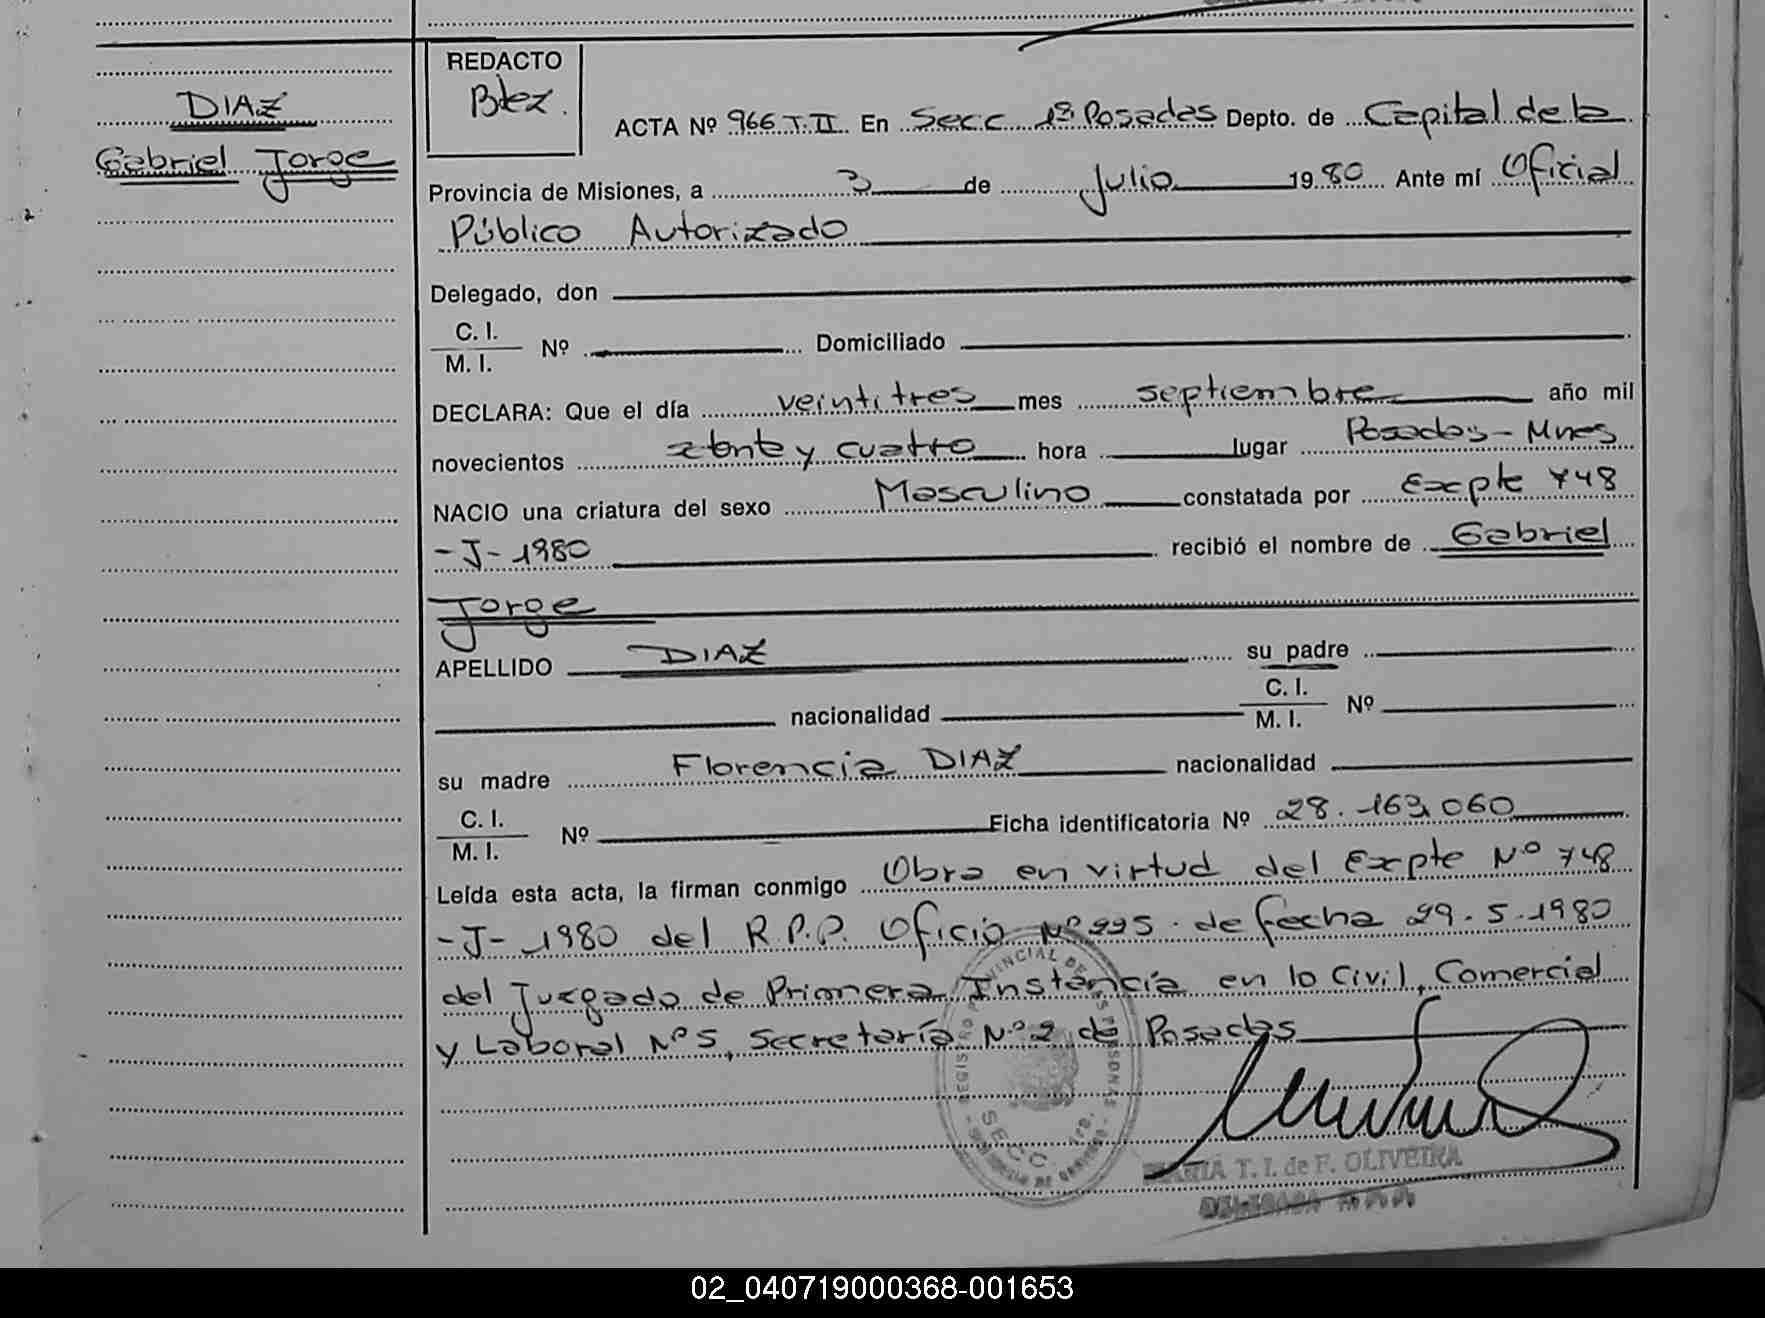 DIAZ
Gabriel Jorge
REDACTO
Btez.
ACTA Nº 966 T. II. En Secc 1ª Posadas Depto. de Capital de la
Provincia de Misiones, a 3 de Julio 1980 Ante mí Oficial
Público Autorizado
Delegado, don
C. I.
M. I. Nº Domiciliado
DECLARA: Que el día veintitres mes septiembre año mil
novecientos y cuatro hora lugar Posadas - Mnes
NACIO una criatura del sexo Masculino constatada por Expte 748
- J - 1980 recibió el nombre de Gabriel
Jorge
APELLIDO DIAZ su padre
nacionalidad C. I.
M. I. Nº
su madre Florencia DIAZ nacionalidad
C. I.
M. I. Nº Ficha identificatoria Nº 28.163.060
Leída esta acta, la firman conmigo Obra en virtud del Expte Nº 748
- J - 1980 del R.P.P. Oficio Nº 995 - de fecha 29.5.1980
del Juzgado de Primera Instancia en lo Civil, Comercial
y Laboral Nº 5, Secretaría Nº 2 de Posadas
REGISTRO PROVINCIAL DE LAS PERSONAS
SECC 1ra.
MARIA T. I. de F. OLIVEIRA
DELEGADA
02_040719000368-001653